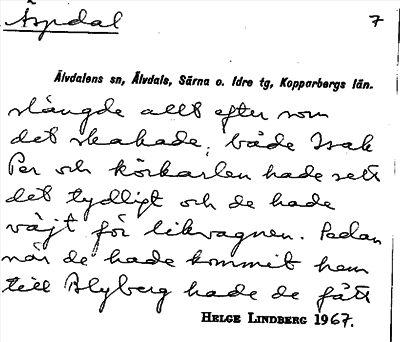 Åspdal
7
Älvdalens sn, Älvdals, Särna o. Idre tg, Kopparbergs län.
slängde allt efter som
det skakade, både Isak
Per och körkarlen hade sett
det tydligt och de hade
väjt för likvagnen. Sedan
när de hade kommit hem
till Blyberg hade de fått
HELGE LINDBERG 1967.